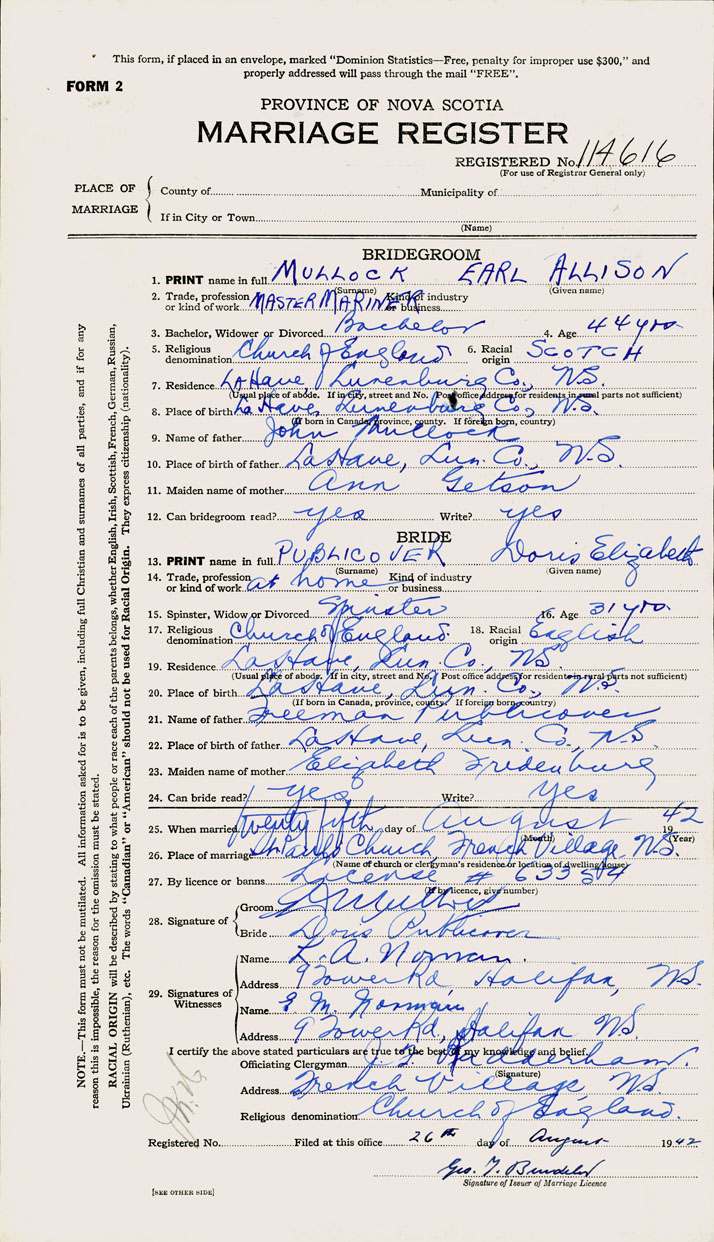 This form, if placed in an envelope, marked "Dominion Statistics—Free, penalty for improper use $300," and
properly addressed will pass through the mail "FREE".
FORM 2
PROVINCE OF NOVA SCOTIA
MARRIAGE REGISTER
REGISTERED No. 114616
(For use of Registrar General only)
PLACE OF MARRIAGE
County of Municipality of
If in City or Town
(Name)
BRIDEGROOM
1. PRINT name in full MULLOCK EARL ALLISON
(Surname) (Given name)
2. Trade, profession or kind of work MASTER MARINER Kind of industry or business
3. Bachelor, Widower or Divorced Bachelor 4. Age 44 yrs.
5. Religious denomination Church of England 6. Racial origin SCOTCH
7. Residence LaHave, Lunenburg Co., N.S.
(Usual place of abode. If in city, street and No. Post office address for residents in rural parts not sufficient)
8. Place of birth LaHave, Lunenburg Co., N.S.
(If born in Canada, province, county. If foreign born, country)
9. Name of father John Mullock
10. Place of birth of father LaHave, Lun. Co., N.S.
11. Maiden name of mother Ann Getson
12. Can bridegroom read? yes Write? yes
BRIDE
13. PRINT name in full PUBLICOVER Doris Elizabeth
(Surname) (Given name)
14. Trade, profession or kind of work at home Kind of industry or business
15. Spinster, Widow or Divorced Spinster 16. Age 31 yrs.
17. Religious denomination Church of England 18. Racial origin English
19. Residence LaHave, Lun. Co., N.S.
(Usual place of abode. If in city, street and No. Post office address for residents in rural parts not sufficient)
20. Place of birth LaHave, Lun. Co., N.S.
(If born in Canada, province, county. If foreign born, country)
21. Name of father Freeman Publicover
22. Place of birth of father LaHave, Lun. Co., N.S.
23. Maiden name of mother Elizabeth Fridenburg
24. Can bride read? yes Write? yes
25. When married twenty fifth day of August 1942
(Month) (Year)
26. Place of marriage St. Pauls Church, French Village, N.S.
(Name of church or clergyman's residence or location of dwelling house)
27. By licence or banns License # 63354
(If by licence, give number)
28. Signature of Groom Mullock
Bride Doris Publicover
29. Signatures of Witnesses
Name L. A. Norman
Address 9 Tower Rd, Halifax, N.S.
Name E M. Norman
Address 9 Tower Rd, Halifax N.S.
I certify the above stated particulars are true to the best of my knowledge and belief.
Officiating Clergyman
(Signature)
Address French Village, N.S.
Religious denomination Church of England.
Registered No. Filed at this office 26th day of August 1942
Geo. T.
Signature of Issuer of Marriage Licence
[SEE OTHER SIDE]
NOTE.—This form must not be mutilated. All information asked for is to be given, including full Christian and surnames of all parties, and if for any
reason this is impossible, the reason for the omission must be stated.
RACIAL ORIGIN will be described by stating to what people or race each of the parents belongs, whether English, Irish, Scottish, French, German, Russian,
Ukrainian (Ruthenian), etc. The words "Canadian" or "American" should not be used for Racial Origin. They express citizenship (nationality).